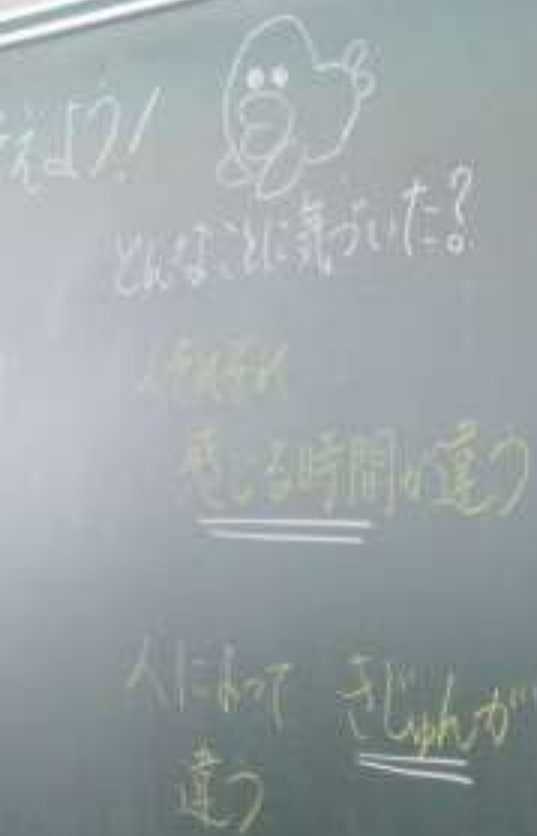 えよう!
どんなことに気づいた?
感じる時間が違う
人によって きじゅんが
違う